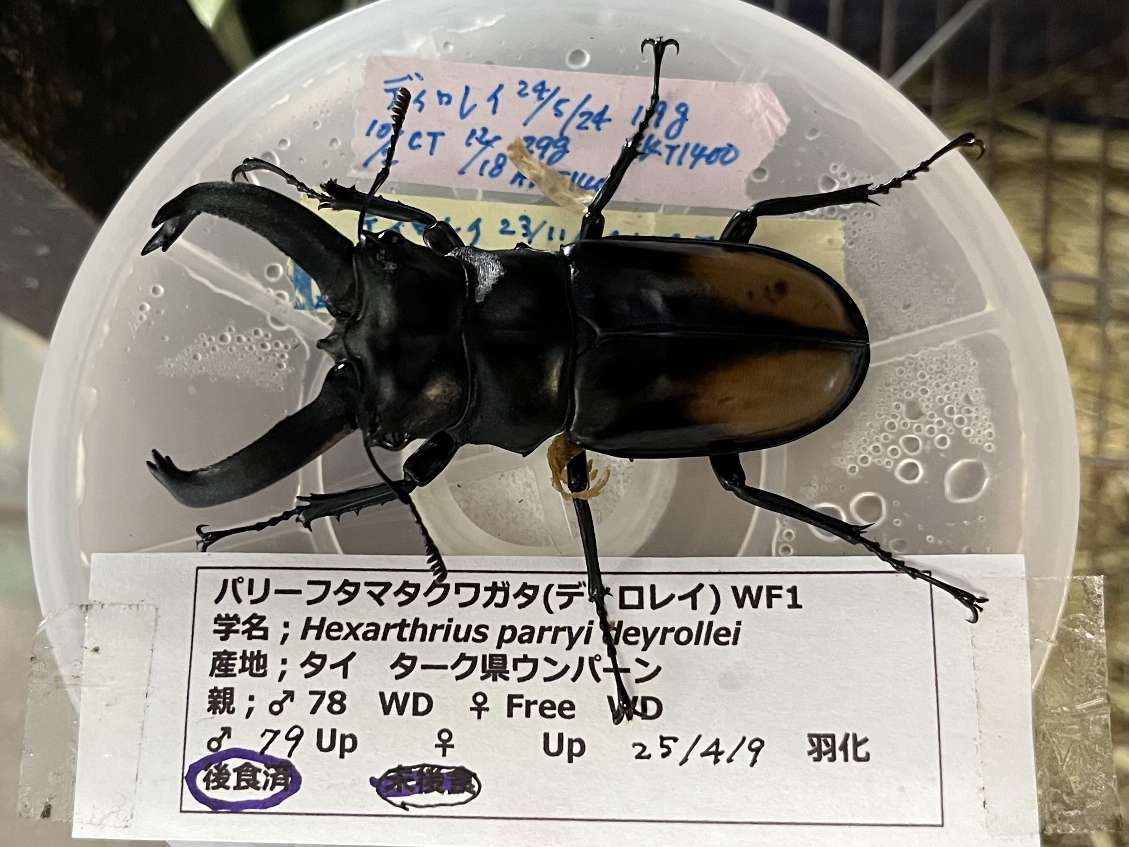 ディロレイ 24/5/24 119g
CT 12/18 29g
23/11
パリーフタマタクワガタ(ディロレイ) WF1
学名;Hexarthrius parryi deyrollei
産地;タイ ターク県ウンパーン
親;♂78 WD ♀ Free WD
♂ 79 Up ♀ Up 25/4/9 羽化
後食済 未後食